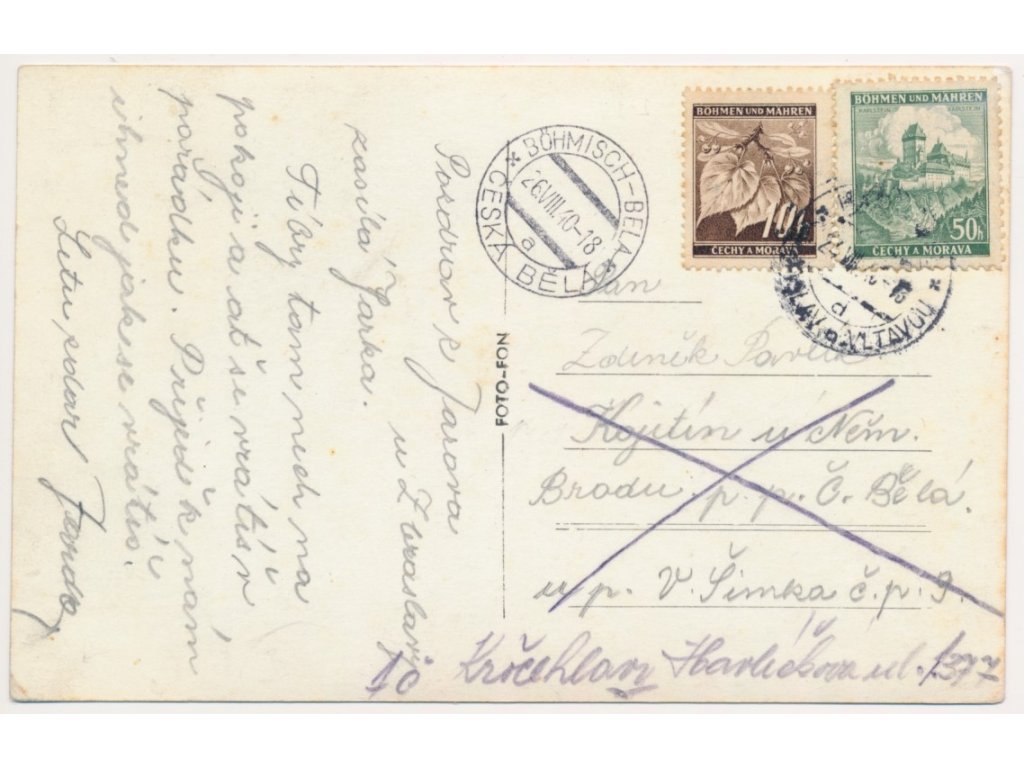 Pozdrav z Jarova
u Zbraslavi
zasílá Jarka.
Ty by tam nech na
pokoji a ať se vrátíš v
pořádku. Přijeď k nám
ihned jak se vrátíš.
Letu zdar Jarda
BÖHMISCH-BĚLÁ
26.VIII.40-18
a
ČESKÁ BĚLÁ
FOTO-FON
BÖHMEN UND MÄHREN
10h
ČECHY A MORAVA
BÖHMEN UND MÄHREN
KARLSTEIN
KARLŠTEJN
50h
ČECHY A MORAVA
VLTAVOU
d
Pan
Zdeněk Pavlík
Kojitín u Něm.
Brodu p. p. Č. Bělá.
u p. V. Šimka č. p. 9.
Kročehlavy Havlíčkova ul. 1377